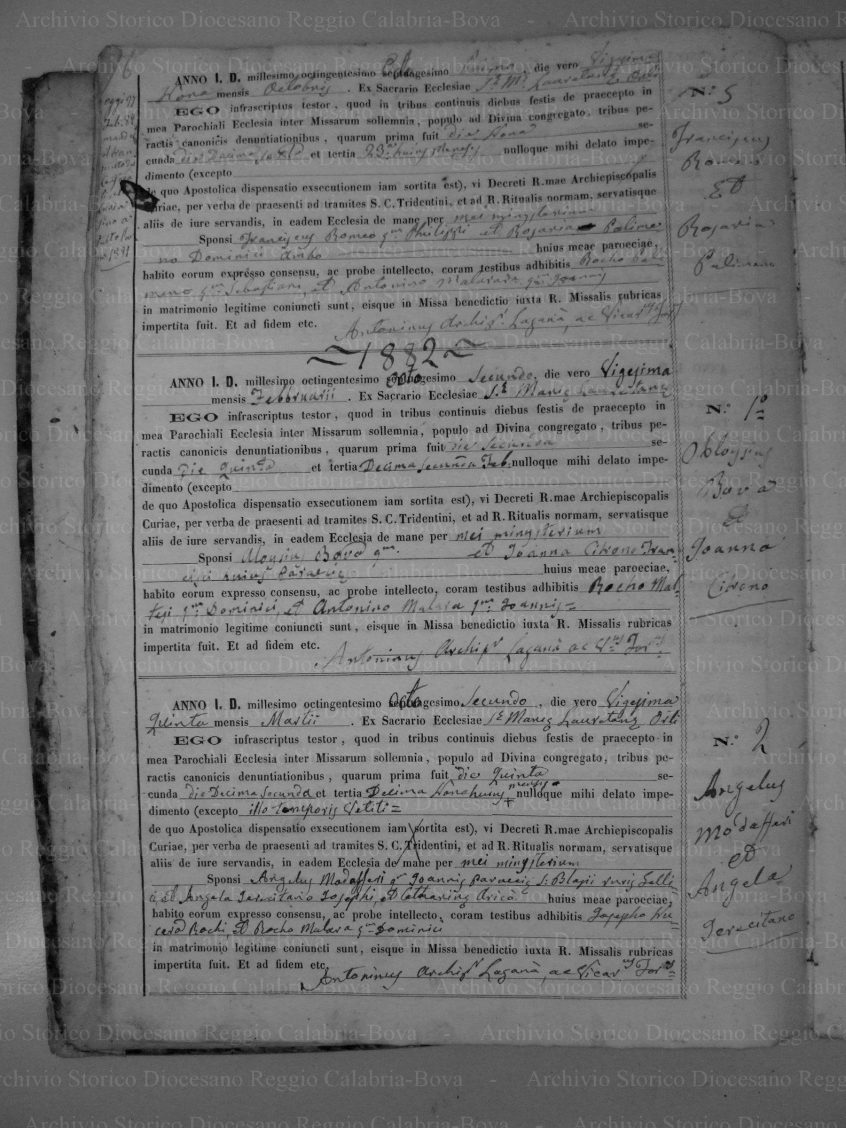 ANNO I. D. millesimo octingentesimo octogesimo primo, die vero Vigesima
Nona mensis Octobris. Ex Sacrario Ecclesiae S.ę M.ę Lauretanę
EGO infrascriptus testor, quod in tribus continuis diebus festis de praecepto in
mea Parochiali Ecclesia inter Missarum sollemnia, populo ad Divina congregato, tribus pe-
ractis canonicis denuntiationibus, quarum prima fuit die Nona se-
cunda die Decima sexta et tertia 23.a huius Mensis nulloque mihi delato impe-
dimento (excepto
de quo Apostolica dispensatio exsecutionem iam sortita est), vi Decreti R.mae Archiepiscopalis
Curiae, per verba de praesenti ad tramites S. C. Tridentini, et ad R. Ritualis normam, servatisque
aliis de iure servandis, in eadem Ecclesia de mane per mei mynisterium
Sponsi Franciscus Romeo q.m Philippi et Rosaria Palime
no Dominici huius meae paroeciae,
habito eorum expresso consensu, ac probe intellecto, coram testibus adhibitis Rocho Pali
meno q.m Sebastiani, et Antonino Malavada q.m Joannis
in matrimonio legitime coniuncti sunt, eisque in Missa benedictio iuxta R. Missalis rubricas
impertita fuit. Et ad fidem etc.
Antoninus Archip.r Laganà, ac Vicar.us For.s
N.º 5
Franciscus
Romeo
Et
Rosaria
Palimeno
~ 1882 ~
ANNO I. D. millesimo octingentesimo octogesimo secundo, die vero Vigesima
mensis Februarii. Ex Sacrario Ecclesiae S.ę Marię Lauretanę
EGO infrascriptus testor, quod in tribus continuis diebus festis de praecepto in
mea Parochiali Ecclesia inter Missarum sollemnia, populo ad Divina congregato, tribus pe-
ractis canonicis denuntiationibus, quarum prima fuit die secunda se-
cunda die Quinta et tertia Decima secunda Feb. nulloque mihi delato impe-
dimento (excepto
de quo Apostolica dispensatio exsecutionem iam sortita est), vi Decreti R.mae Archiepiscopalis
Curiae, per verba de praesenti ad tramites S. C. Tridentini, et ad R. Ritualis normam, servatisque
aliis de iure servandis, in eadem Ecclesia de mane per mei mynisterium
Sponsi Aloysius Bova q.m et Joanna Cirono Fran-
cisci huius meae paroeciae,
habito eorum expresso consensu, ac probe intellecto, coram testibus adhibitis Rocho Mal-
q.m Dominici, et Antonino Malara q.m Joannis =
in matrimonio legitime coniuncti sunt, eisque in Missa benedictio iuxta R. Missalis rubricas
impertita fuit. Et ad fidem etc.
Antoninus Archip.r Laganà ac V.us For.s
N.º 1º
Aloysius
Bova
et
Joanna
Cirono
ANNO I. D. millesimo octingentesimo octogesimo secundo, die vero Vigesima
Quinta mensis Martii. Ex Sacrario Ecclesiae S.ę Marię Lauretanę Orti
EGO infrascriptus testor, quod in tribus continuis diebus festis de praecepto in
mea Parochiali Ecclesia inter Missarum sollemnia, populo ad Divina congregato, tribus pe-
ractis canonicis denuntiationibus, quarum prima fuit die Quinta se-
cunda die Decima secunda et tertia Decima Nona huius mensis nulloque mihi delato impe-
dimento (excepto illo temporis Vetiti =
de quo Apostolica dispensatio exsecutionem iam sortita est), vi Decreti R.mae Archiepiscopalis
Curiae, per verba de praesenti ad tramites S. C. Tridentini, et ad R. Ritualis normam, servatisque
aliis de iure servandis, in eadem Ecclesia de mane per mei mynisterium
Sponsi Angelus Modafferi q. Joannis paroecię S. Blasii
et Angela Geracitano Josephi, et Catharinę Aricò huius meae paroeciae,
habito eorum expresso consensu, ac probe intellecto, coram testibus adhibitis Josepho
Rochi, et Rocho Malara q.m Dominici
in matrimonio legitime coniuncti sunt, eisque in Missa benedictio iuxta R. Missalis rubricas
impertita fuit. Et ad fidem etc.
Antoninus Archip.r Laganà, ac Vicar.us For.s
N.º 2
Angelus
Modafferi
et
Angela
Geracitano
Archivio Storico Diocesano Reggio Calabria-Bova